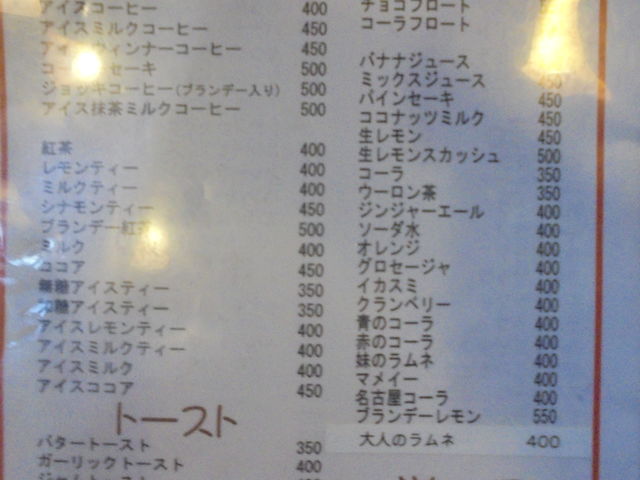 アイスコーヒー 400
アイスミルクコーヒー 450
アイスウィンナーコーヒー 450
コーヒーセーキ 500
ジョッキコーヒー(ブランデー入り) 500
アイス抹茶ミルクコーヒー 500
紅茶 400
レモンティー 400
ミルクティー 400
シナモンティー 450
ブランデー紅茶 500
ミルク 400
ココア 450
無糖アイスティー 350
加糖アイスティー 350
アイスレモンティー 400
アイスミルクティー 400
アイスミルク 400
アイスココア 450
トースト
バタートースト 350
ガーリックトースト 400
ジャムトースト
チョコフロート
コーラフロート
バナナジュース
ミックスジュース 450
パインセーキ 450
ココナッツミルク 450
生レモン 450
生レモンスカッシュ 500
コーラ 350
ウーロン茶 350
ジンジャーエール 400
ソーダ水 400
オレンジ 400
グロセージャ 400
イカスミ 400
クランベリー 400
青のコーラ 400
赤のコーラ 400
妹のラムネ 400
マメイー 400
名古屋コーラ 400
ブランデーレモン 550
大人のラムネ 400